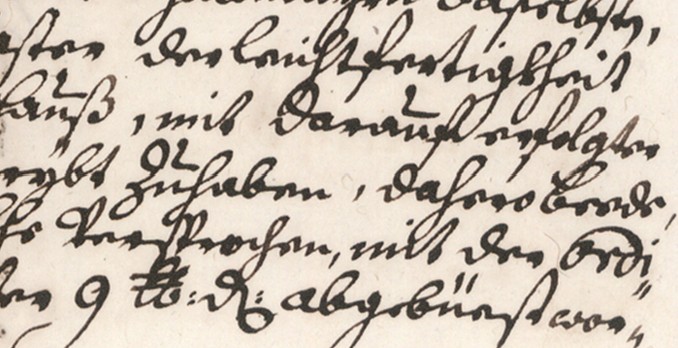 daselbsten,
aster der leichtfertigkheit
hauß, mit darauf erfolgter
rybt Zuhaben, dahero beede,
he Versprochen, mit der bedi
ter 9 lb: d: abgebüest wor„